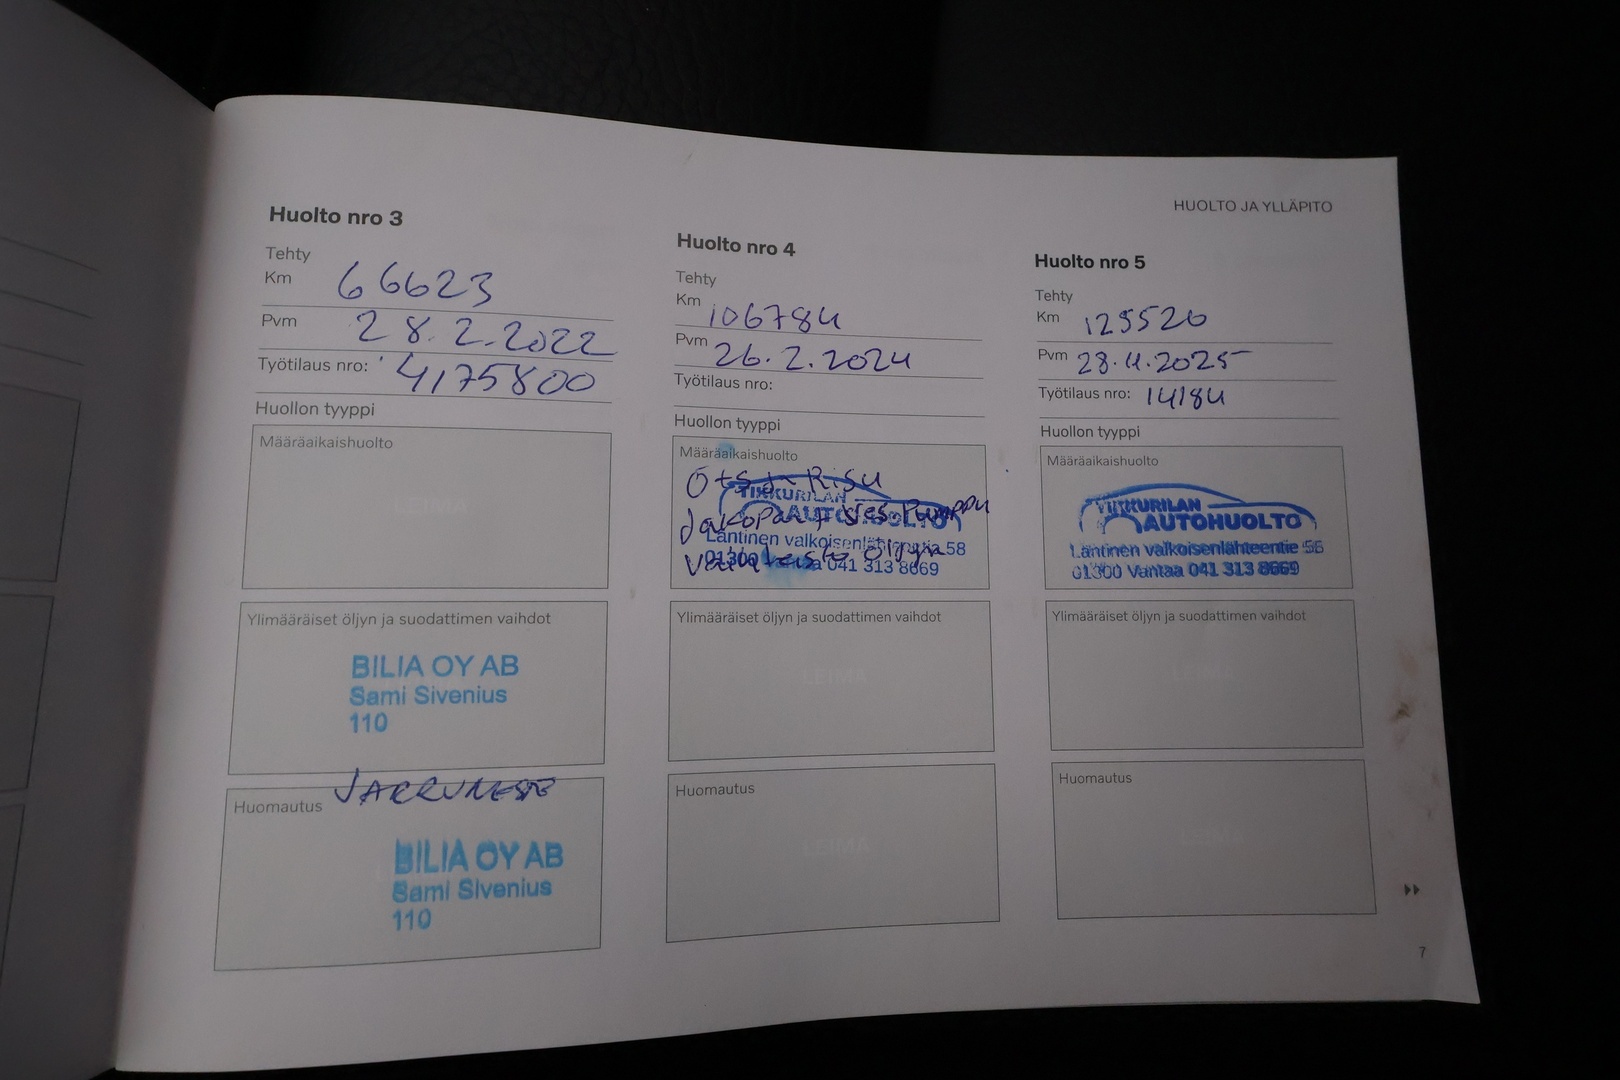 HUOLTO JA YLLÄPITO
Huolto nro 3
Tehty
Km 66623
Pvm 28.2.2022
Työtilaus nro: 4175800
Huollon tyyppi
Määräaikaishuolto
LEIMA
Ylimääräiset öljyn ja suodattimen vaihdot
BILIA OY AB
Sami Sivenius
110
Huomautus JARRUNESTE
BILIA OY AB
Sami Sivenius
110
Huolto nro 4
Tehty
Km 106784
Pvm 26.2.2024
Työtilaus nro:
Huollon tyyppi
Määräaikaishuolto
TIKKURILAN
AUTOHUOLTO
Jakopää + Ves. Pumppu
Läntinen valkoisenlähteentie 58
01300 Vantaa 041 313 8669
Ylimääräiset öljyn ja suodattimen vaihdot
LEIMA
Huomautus
LEIMA
Huolto nro 5
Tehty
Km 125520
Pvm 28.4.2025
Työtilaus nro: 14184
Huollon tyyppi
Määräaikaishuolto
TIKKURILAN
AUTOHUOLTO
Läntinen valkoisenlähteentie 58
01300 Vantaa 041 313 8669
Ylimääräiset öljyn ja suodattimen vaihdot
LEIMA
Huomautus
LEIMA
7